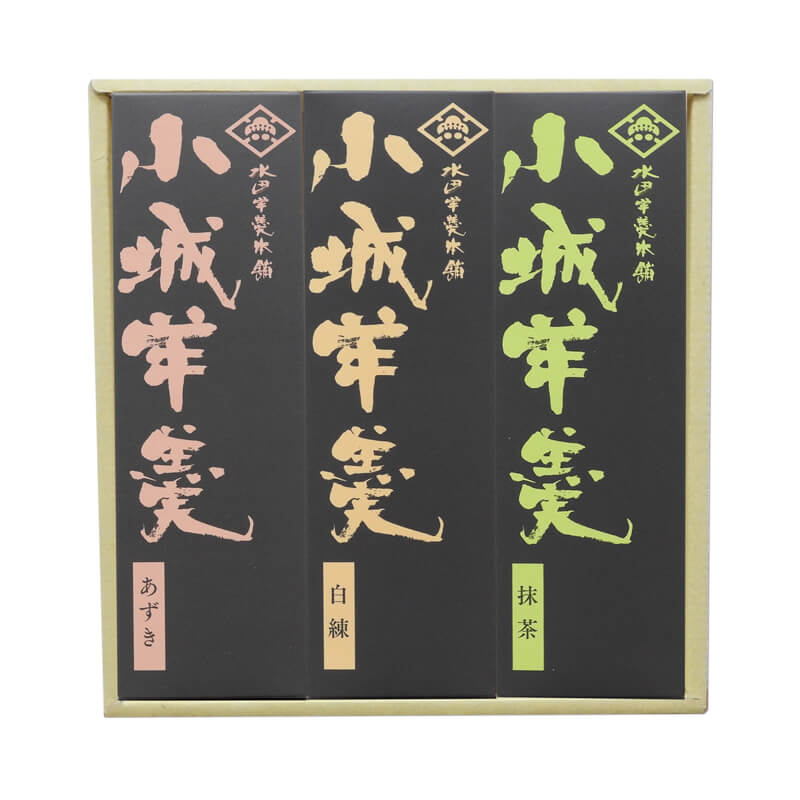 小城羊羹
水田羊羹本舗
あずき
小城羊羹
水田羊羹本舗
白練
小城羊羹
水田羊羹本舗
抹茶